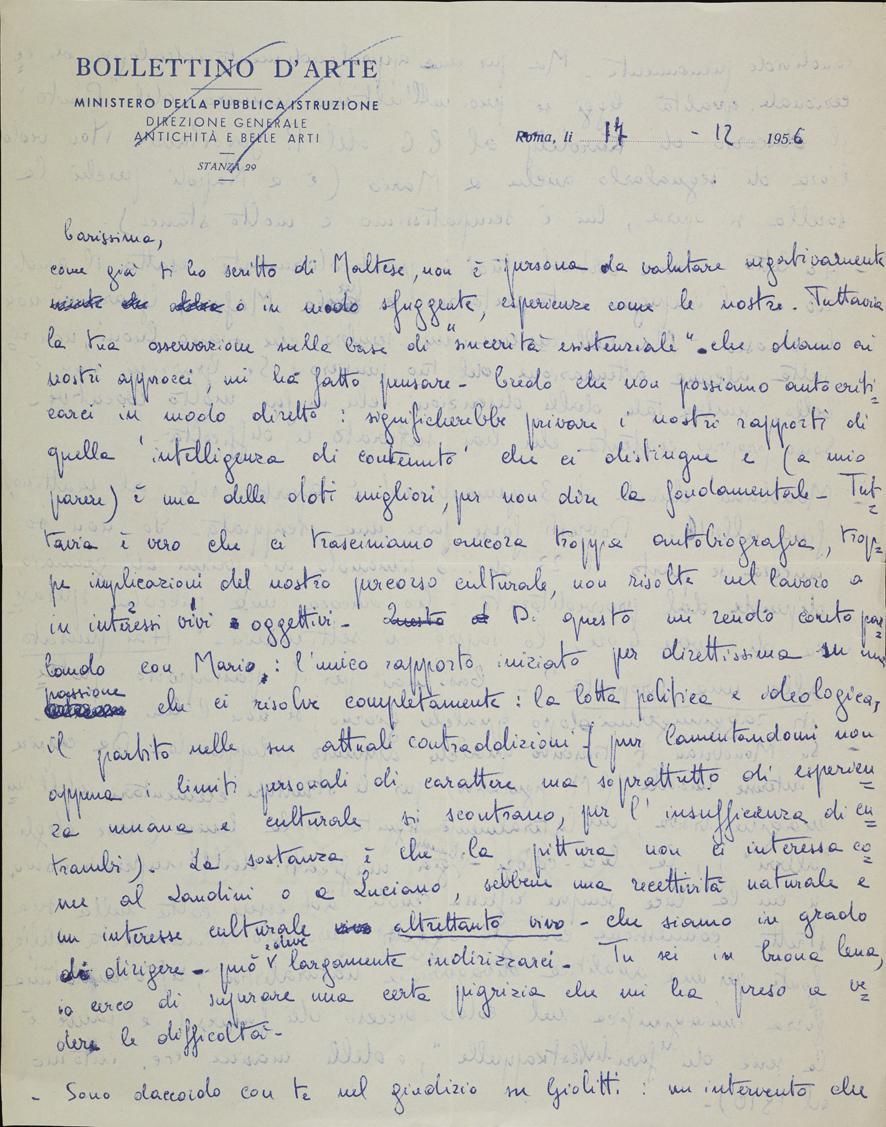 BOLLETTINO D'ARTE
MINISTERO DELLA PUBBLICA ISTRUZIONE
DIREZIONE GENERALE
ANTICHITÀ E BELLE ARTI
STANZA 29
Roma, li 17 - 12 1956
Carissima,
come già ti ho scritto di Maltese, non è persona da valutare negativamente
o in modo sfuggente, esperienze come le nostre. Tuttavia
la tua osservazione sulla base di "sincerità esistenziale" che diamo ai
nostri approcci, mi ha fatto pensare - Credo che non possiamo autocriti=
carci in modo diretto : significherebbe privare i nostri rapporti di
quella 'intelligenza di contenuto' che ci distingue e (a mio
parere) è una delle doti migliori, per non dire la fondamentale - Tut=
tavia è vero che ci trasciniamo ancora troppa autobiografia, trop=
pe implicazioni del nostro percorso culturale, non risolte nel lavoro a
in interessi vivi e oggettivi - Questo Di questo mi rendo conto par
lando con Mario : l'unico rapporto iniziato per direttissima su una
passione che ci risolve completamente : la lotta politica e ideologica,
il partito nelle sue attuali contraddizioni - (pur lamentandomi non
appena i limiti personali di carattere ma soprattutto di esperien=
za umana e culturale si scontrano, per l'insufficienza di en=
trambi). La sostanza è che la pittura non ci interessa co=
me al Landini o a Luciano, sebbene una recettività naturale e
un interesse culturale vivo altrettanto vivo - che siamo in grado
di dirigere - può largamente indirizzarci - Tu sei in buona lena,
io cerco di superare una certa pigrizia che mi ha preso a ve=
dere le difficoltà -
- Sono daccordo con te nel giudizio su Giolitti : un intervento che